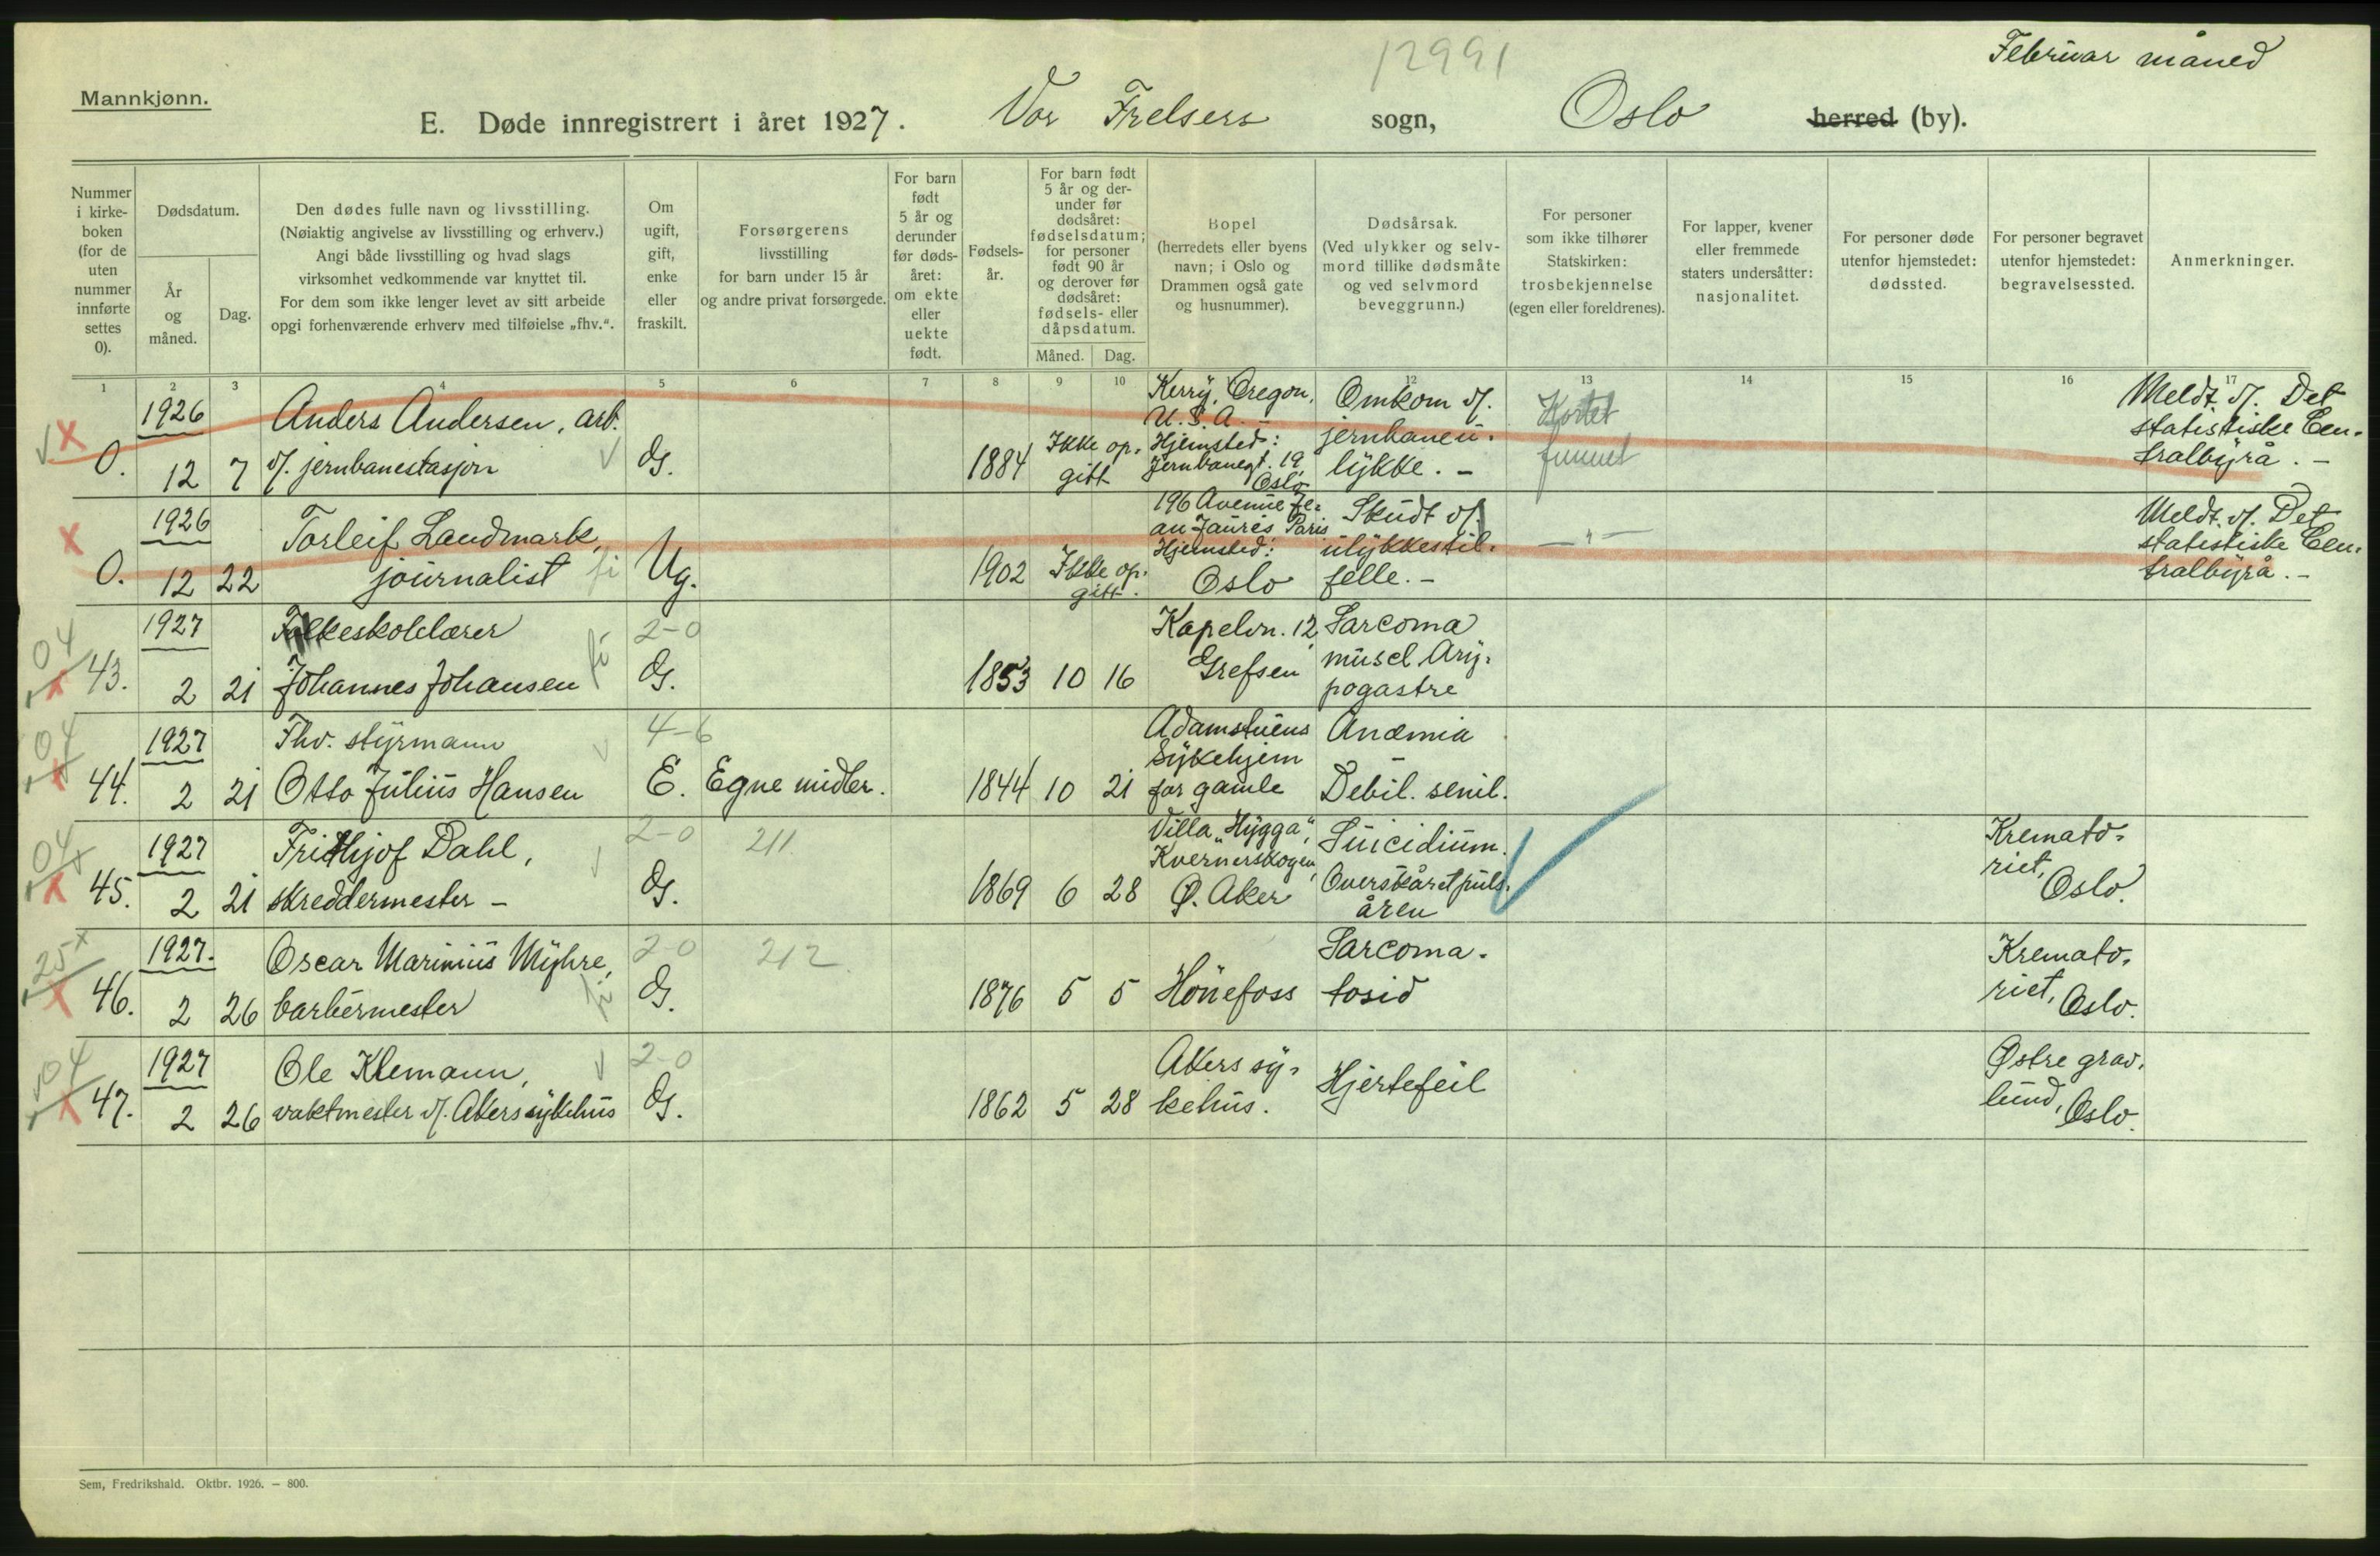 12991
Februar måned
Mannkjønn.
E. Døde innregistrert i året 1927. Vor Frelsers sogn, Oslo herred (by).
Nummer
i kirke-
boken
(for de
uten
nummer
innførte
settes
0).
Dødsdatum.
År
og
måned.
Dag.
Den dødes fulle navn og livsstilling.
(Nøiaktig angivelse av livsstilling og erhverv.)
Angi både livsstilling og hvad slags
virksomhet vedkommende var knyttet til.
For dem som ikke lenger levet av sitt arbeide
opgi forhenværende erhverv med tilføielse „fhv.“.
Om
ugift,
gift,
enke
eller
fraskilt.
Forsørgerens
livsstilling
for barn under 15 år
og andre privat forsørgede.
For barn
født
5 år og
derunder
før døds-
året:
om ekte
eller
uekte
født.
Fødsels-
år.
For barn født
5 år og der-
under før
dødsåret:
fødselsdatum;
for personer
født 90 år
og derover før
dødsåret:
fødsels- eller
dåpsdatum.
Måned. Dag.
Bopel
(herredets eller byens
navn; i Oslo og
Drammen også gate
og husnummer).
Dødsårsak.
(Ved ulykker og selv-
mord tillike dødsmåte
og ved selvmord
beveggrunn.)
For personer
som ikke tilhører
Statskirken:
trosbekjennelse
(egen eller foreldrenes).
For lapper, kvener
eller fremmede
staters undersåtter:
nasjonalitet.
For personer døde
utenfor hjemstedet:
dødssted.
For personer begravet
utenfor hjemstedet:
begravelsessted.
Anmerkninger.
1 2 3 4 5 6 7 8 9 10 12 13 14 15 16 17
0.
1926
12 7
Anders Andersen, arb.
v/. jernbanestasjon
G.
1884
Ikke op-
gitt
Kerry, Oregon,
U.S.A. –
Hjemsted:
Jernbanegt. 19
Oslo
Omkom v/.
jernbaneu-
lykke. –
Kortet
funnet
Meldt v/. Det
statistiske Cen-
tralbyrå. –
0.
1926
12 22
Torleif Landmark,
journalist fi
Ug.
1902
Ikke op-
gitt.
196 Avenue Je-
an Jaurés Paris
Hjemsted:
Oslo
Skudt v/.
ulykkestil-
felle. –
– " –
Meldt v/. Det
statistiske Cen-
tralbyrå. –
04
43.
1927
2 21
Folkeskolelærer
Johannes Johansen
fi
2-0
G.
1853 10 16
Kapelvn. 12,
Grefsen
Sarcoma
musel Ary-
pogastre
04
44.
1927
2 21
Fhv. styrmann
Otto Julius Hansen
4-6
E.
Egne midler.
1844 10 21
Adamstuens
Sykehjem
for gamle
Anæmia
Debil. senil.
04
45.
1927
2 21
Frithjof Dahl,
skreddermester –
2-0
G.
211
1869 6 28
Villa „Hygga“,
Kvernerskogen,
Ø. Aker
Suicidium.
Overskåret puls-
åren
Kremato-
riet,
Oslo.
25
46.
1927.
2 26
Oscar Marinius Myhre,
barbermester
fi
2-0
G.
212
1876 5 5
Hönefoss
Sarcoma-
tosid
Kremato-
riet, Oslo.
04
47.
1927
2 26
Ole Klemann,
vaktmester v/. Akers sykehus
2-0
G.
1862 5 28
Akers sy-
kehus.
Hjertefeil
Østre grav-
lund, Oslo.
Sem, Fredrikshald. Oktbr. 1926. – 800.